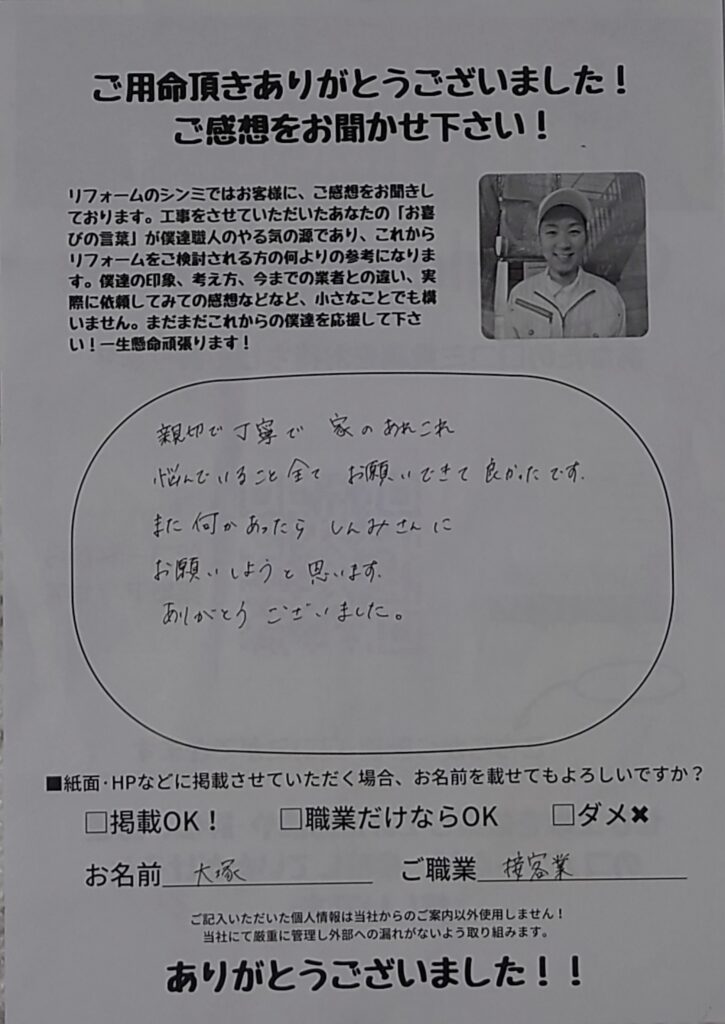 ご用命頂きありがとうございました！
ご感想をお聞かせ下さい！
リフォームのシンミではお客様に、ご感想をお聞きし
ております。工事をさせていただいたあなたの「お喜
びの言葉」が僕達職人のやる気の源であり、これから
リフォームをご検討される方の何よりの参考になりま
す。僕達の印象、考え方、今までの業者との違い、実
際に依頼してみての感想などなど、小さなことでも構
いません。まだまだこれからの僕達を応援して下さ
い！一生懸命頑張ります！
親切で丁寧で 家のあれこれ
悩んでいること全て お願いできて良かったです.
また何かあったら しんみさんに
お願いしようと思います.
ありがとう ございました。
■紙面･HPなどに掲載させていただく場合、お名前を載せてもよろしいですか？
□掲載OK！ □職業だけならOK □ダメ✖
お名前 大塚 ご職業 接客業
ご記入いただいた個人情報は当社からのご案内以外使用しません！
当社にて厳重に管理し外部への漏れがないよう取り組みます。
ありがとうございました！！